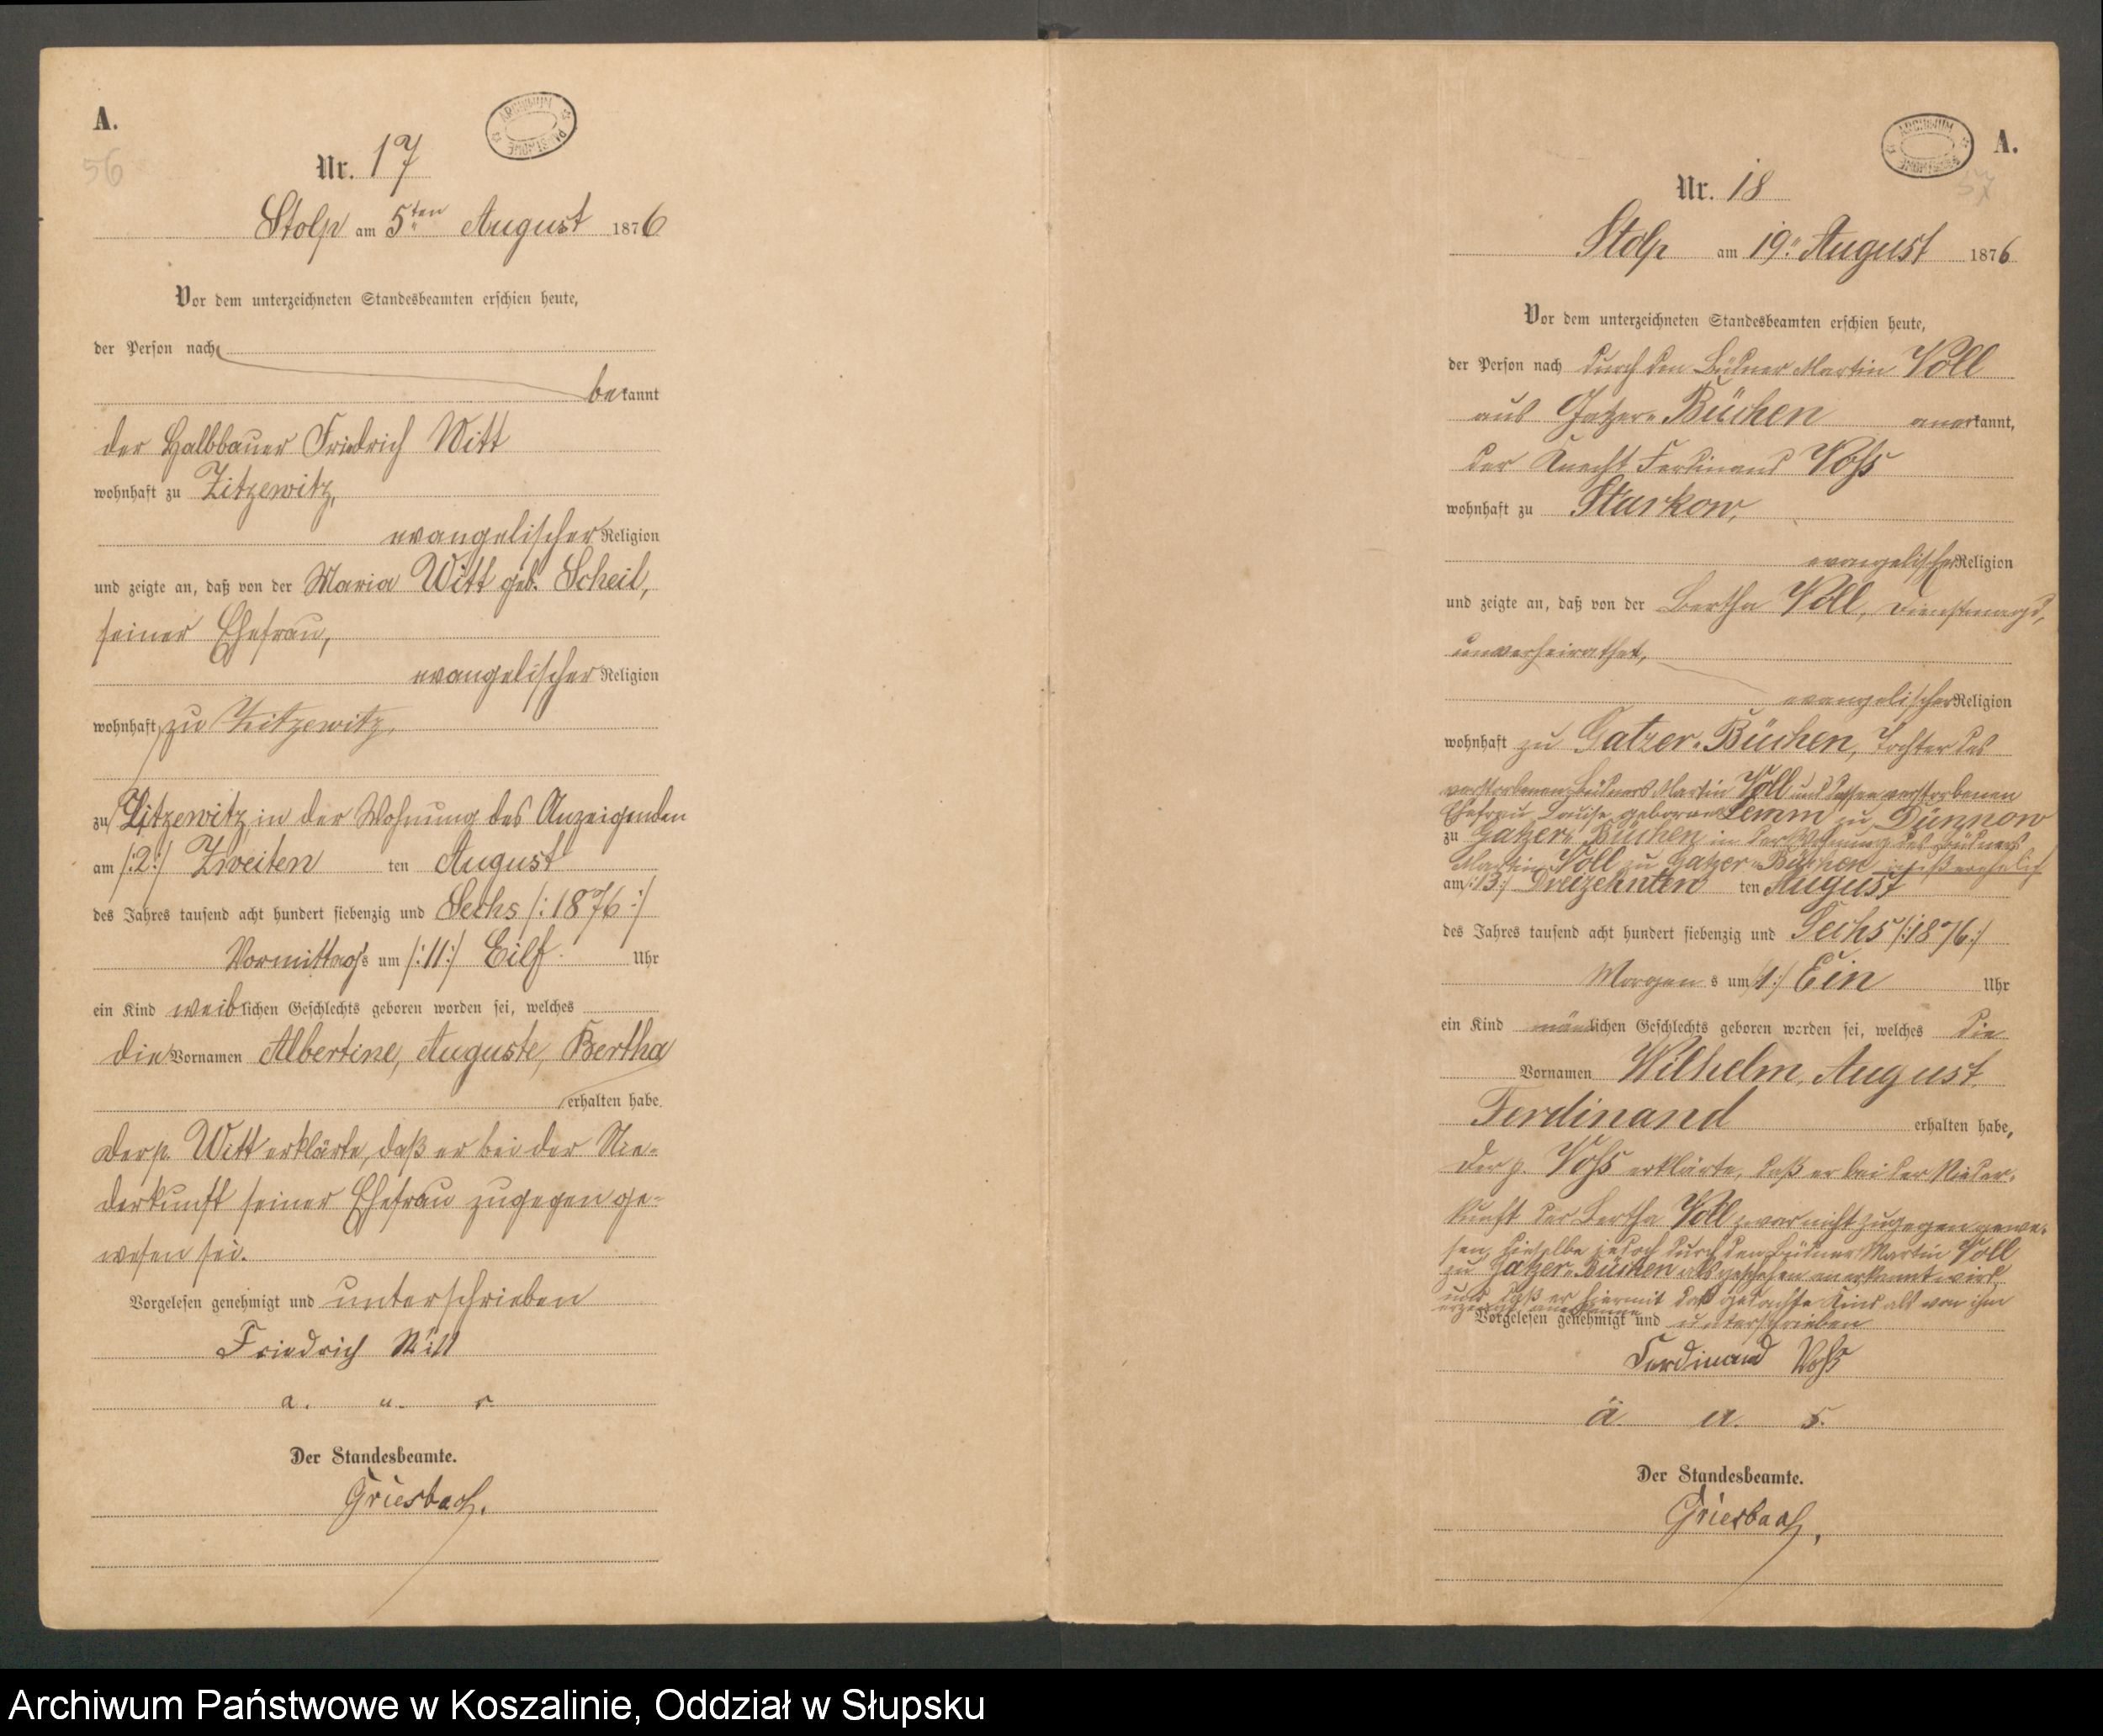 A.
56
ARCHIWUM PAŃSTWOWE
Nr. 17
Stolp am 5ten August 1876
Vor dem unterzeichneten Standesbeamten erschien heute,
der Person nach
bekannt
der Halbbauer Friedrich Witt
wohnhaft zu Zitzewitz,
evangelischer Religion
und zeigte an, daß von der Maria Witt geb. Scheil,
seiner Ehefrau,
evangelischer Religion
wohnhaft zu Zitzewitz,
zu Zitzewitz in der Wohnung des Anzeigenden
am /:2:/ Zweiten ten August
des Jahres tausend acht hundert siebenzig und Sechs /:1876:/
Vormittags um /:11:/ Eilf Uhr
ein Kind weiblichen Geschlechts geboren worden sei, welches
die Vornamen Albertine, Auguste, Bertha
erhalten habe.
Der p. Witt erklärte, daß er bei der Nie-
derkunft seiner Ehefrau zugegen ge-
wesen sei.
Vorgelesen genehmigt und unterschrieben
Friedrich Witt
a. u. s.
Der Standesbeamte.
Griesbach.
ARCHIWUM PAŃSTWOWE
A.
57
Nr. 18
Stolp am 19" August 1876
Vor dem unterzeichneten Standesbeamten erschien heute,
der Person nach durch den Büdner Martin Voll
aus Gatzer-Büchen anerkannt,
der Knecht Ferdinand Voß
wohnhaft zu Starkow,
evangelischer Religion
und zeigte an, daß von der Bertha Voll, Dienstmagd,
unverheirathet,
evangelischer Religion
wohnhaft zu Gatzer-Büchen, Tochter des
verstorbenen Büdners Martin Voll und dessen verstorbenen
Ehefrau Louise geborene Lemm zu Dünnow
zu Gatzer-Büchen in der Wohnung des Büdners
Martin Voll zu Gatzer-Büchen
am /:13:/ Dreizehnten ten August
des Jahres tausend acht hundert siebenzig und Sechs /:1876:/
Morgens um /:1:/ Ein Uhr
ein Kind männlichen Geschlechts geboren worden sei, welches die
Vornamen Wilhelm, August
Ferdinand erhalten habe,
Der p. Voß erklärte, daß er bei der Nieder-
kunft der Bertha Voll zwar nicht zugegen gewe-
sen, dieselbe jedoch durch den Büdner Martin Voll
zu Gatzer-Büchen als geschehen anerkannt wird,
und daß er hiermit das gedachte Kind als von ihm
erzeugt anerkenne
Vorgelesen genehmigt und unterschrieben
Ferdinand Voß
a. u. s.
Der Standesbeamte.
Griesbach.
Archiwum Państwowe w Koszalinie, Oddział w Słupsku